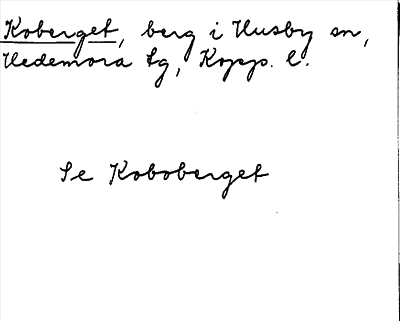 Koberget, berg i Husby sn,
Hedemora tg, Kopp. l.
Se Koboberget